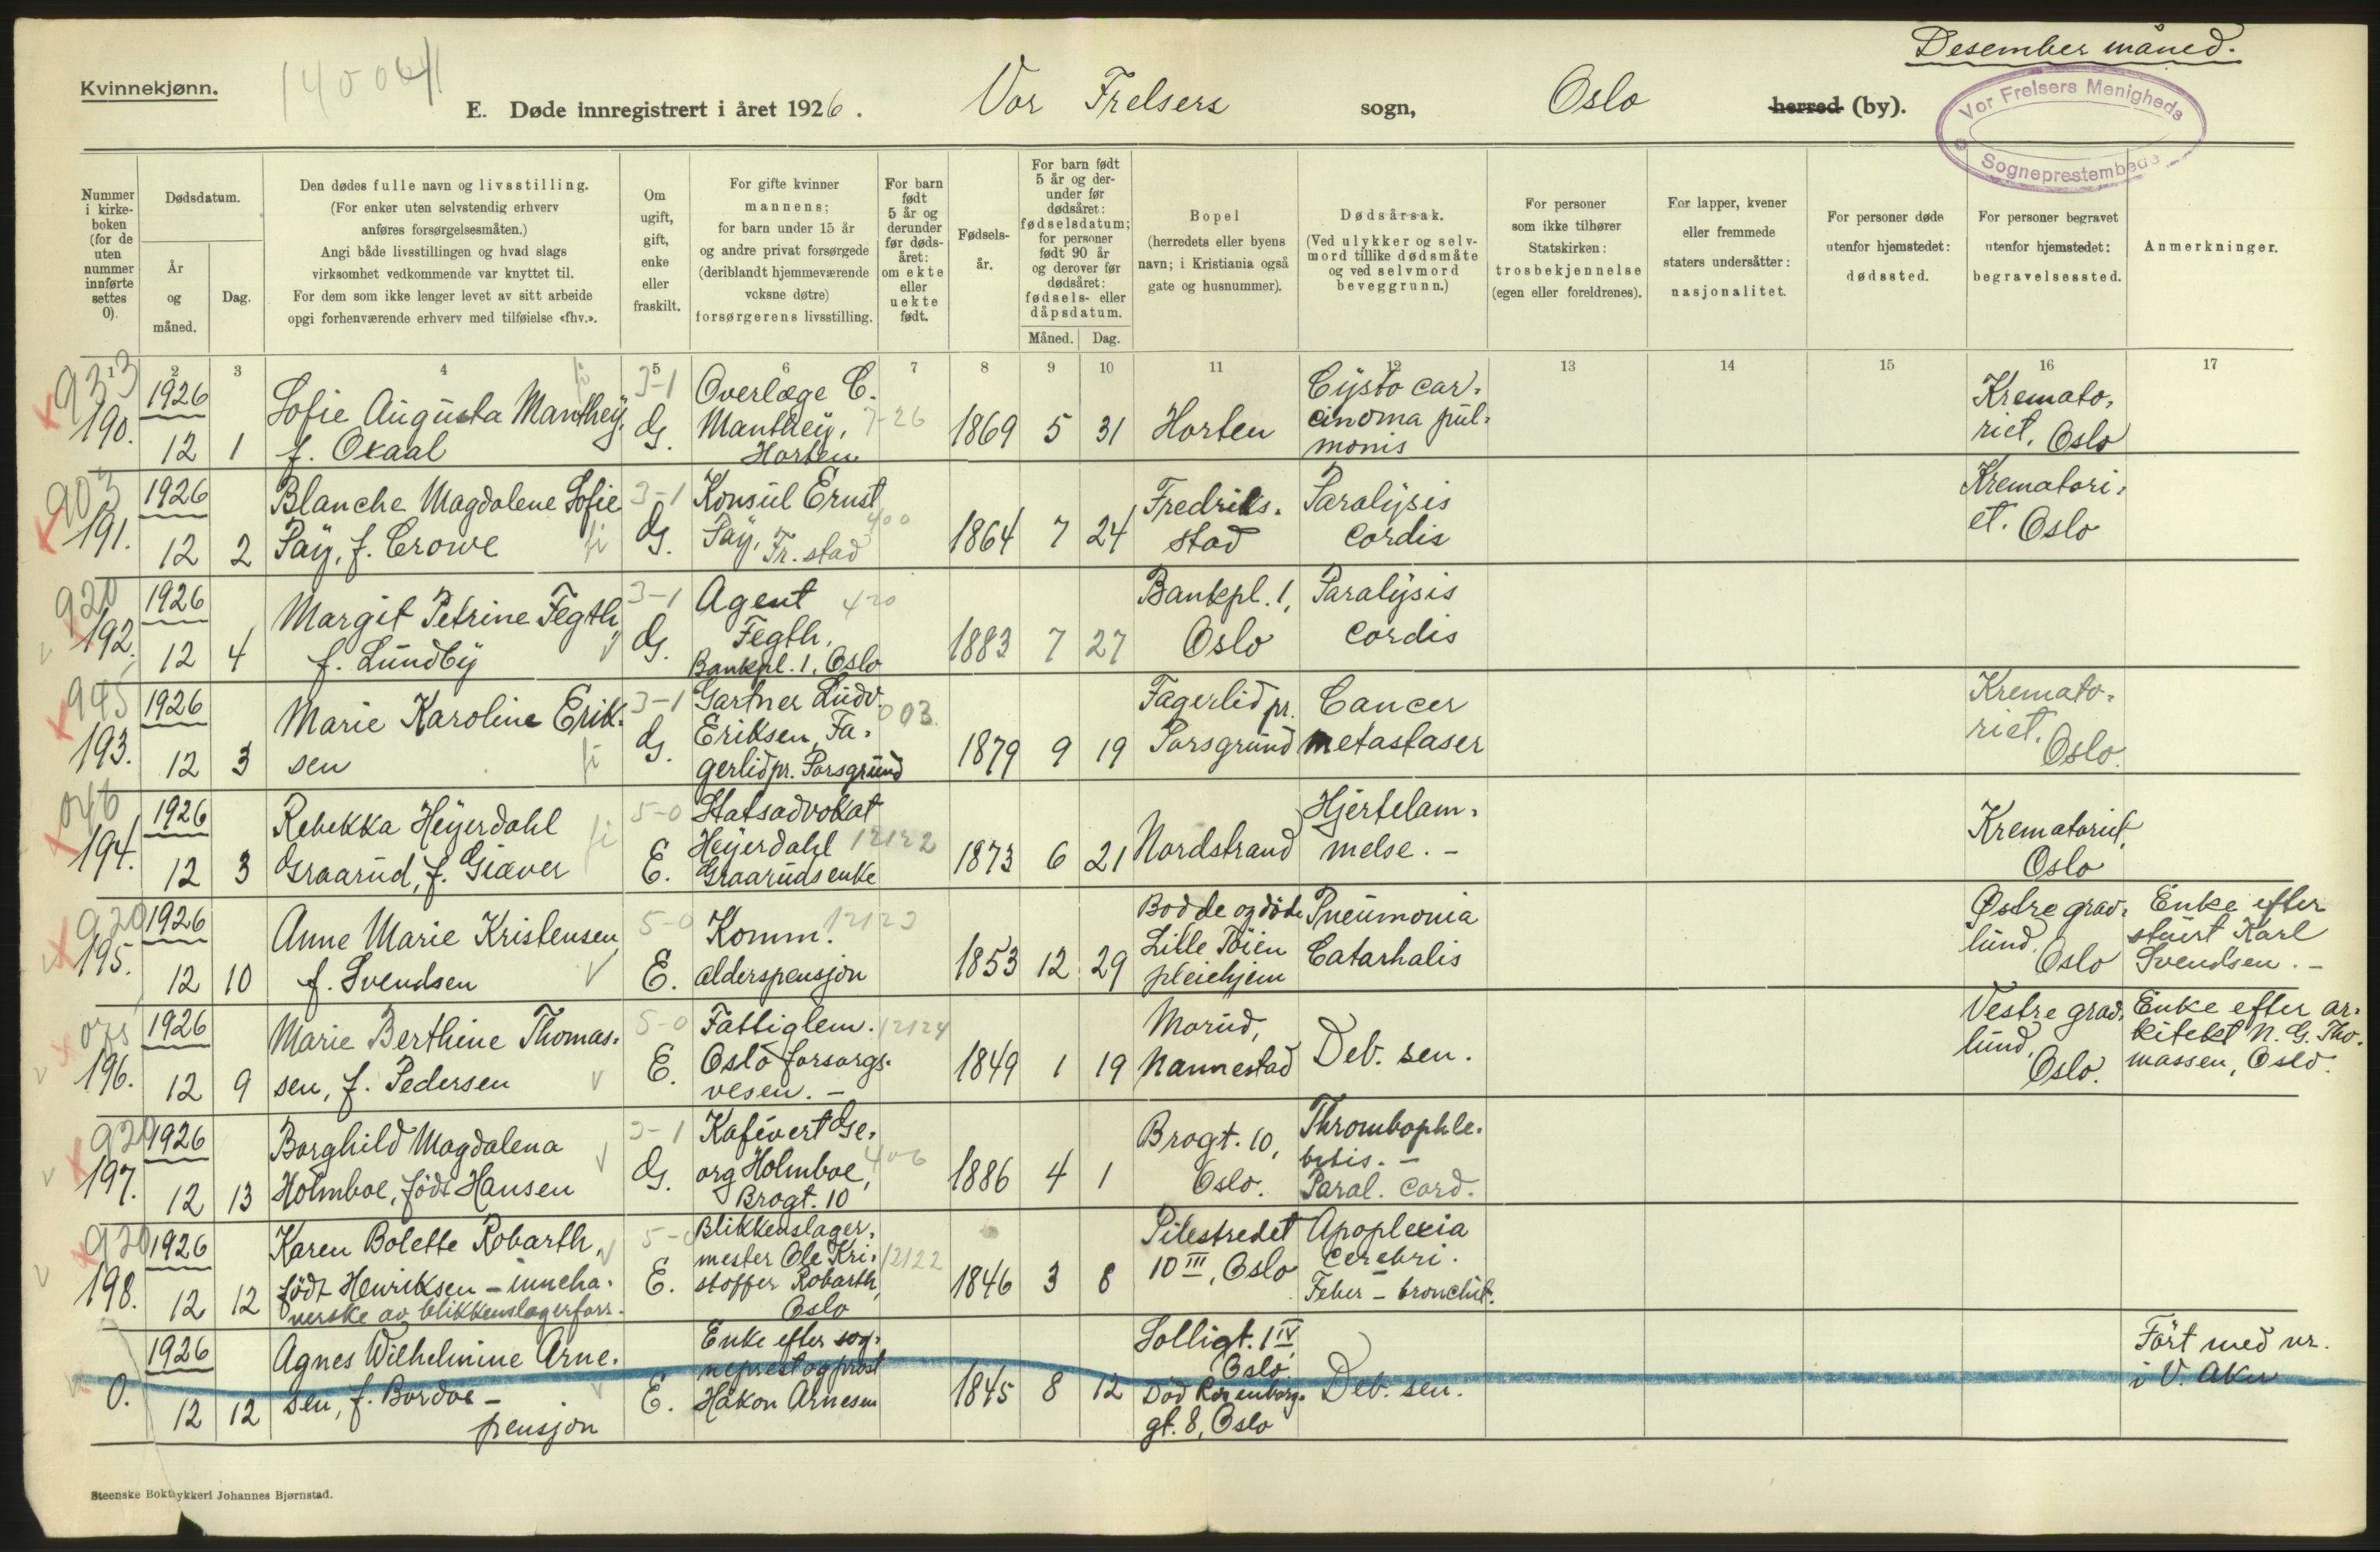 Desember måned.
Kvinnekjønn.
140064
E. Døde innregistrert i året 1926. Vor Frelsers sogn, Oslo herred (by).
Vor Frelsers Menigheds
Sogneprestembede
Nummer i kirkeboken (for de uten nummer innførte settes 0).
Dødsdatum.
År og måned.
Dag.
Den dødes fulle navn og livsstilling.
(For enker uten selvstendig erhverv
anføres forsørgelsesmåten.)
Angi både livsstillingen og hvad slags
virksomhet vedkommende var knyttet til.
For dem som ikke lenger levet av sitt arbeide
opgi forhenværende erhverv med tilføielse «fhv.».
Om ugift, gift, enke eller fraskilt.
For gifte kvinner
mannens;
for barn under 15 år
og andre privat forsørgede
(deriblandt hjemmeværende
voksne døtre)
forsørgerens livsstilling.
For barn født 5 år og derunder før dødsåret: om ekte eller uekte født.
Fødselsår.
For barn født 5 år og derunder før dødsåret: fødselsdatum; for personer født 90 år og derover før dødsåret: fødsels- eller dåpsdatum.
Måned. Dag.
Bopel
(herredets eller byens
navn; i Kristiania også
gate og husnummer).
Dødsårsak.
(Ved ulykker og selvmord tillike dødsmåte og ved selvmord beveggrunn.)
For personer
som ikke tilhører
Statskirken:
trosbekjennelse
(egen eller foreldrenes).
For lapper, kvener
eller fremmede
staters undersåtter:
nasjonalitet.
For personer døde
utenfor hjemstedet:
dødssted.
For personer begravet
utenfor hjemstedet:
begravelsessted.
Anmerkninger.
1 2 3 4 5 6 7 8 9 10 11 12 13 14 15 16 17
933
190. 1926 12 1
Sofie Augusta Manthey,
f. Oxaal
3-1
G.
Overlæge C.
Manthey, 7-26
Horten
1869 5 31
Horten
Cysto car-
cinoma pul-
monis
Kremato-
riet, Oslo
903
191. 1926 12 2
Blanche Magdalene Sofie
Pay, f. Crowe
3-1
G.
Konsul Ernst
Pay, Fr.stad
400
1864 7 24
Fredrik-
stad
Paralysis
cordis
Krematori-
et. Oslo
920
192. 1926 12 4
Margit Petrine Fegth
f. Lundby
3-1
G.
Agent 420
Fegth,
Bankpl. 1, Oslo
1883 7 27
Bankpl. 1,
Oslo
Paralysis
cordis
945
193. 1926 12 3
Marie Karoline Erik-
sen
3-1
G.
Gartner Ludv.
Eriksen, Fa-
gerlid pr. Porsgrund
003.
1879 9 19
Fagerlid pr.
Porsgrund
Cancer
metastaser
Kremato-
riet. Oslo.
046
194. 1926 12 3
Rebekka Heyerdahl
Graarud, f. Giæver
5-0
E.
Statsadvokat
Heyerdahl 12122
Graaruds enke
1873 6 21
Nordstrand
Hjertelam-
melse. -
Krematoriet,
Oslo
920
195. 1926 12 10
Anne Marie Kristensen
f. Svendsen
5-0
E.
Komm. 12123
alderspensjon
1853 12 29
Bodde og døde
Lille Töien
pleiehjem
Pneumonia
Catarhalis
Østre grav-
lund. Oslo
Enke efter
stuert Karl
Svendsen. -
196. 1926 12 9
Marie Berthine Thomas-
sen, f. Pedersen
5-0
E.
Fattiglem. 12124
Oslo forsorgs-
vesen. -
1849 1 19
Morud,
Nannestad
Deb. sen.
Vestre grav-
lund, Oslo.
Enke efter ar-
kitekt N. G. Tho-
massen, Oslo.
920
197. 1926 12 13
Borghild Magdalena
Holmboe, født Hansen
3-1
G.
Kafévert Ge-
org Holmboe, 406
Brogt. 10
1886 4 1
Brogt. 10,
Oslo.
Thrombophle-
bitis. -
Paral. cord.
920
198. 1926 12 12
Karen Bolette Robarth,
født Henriksen - inneha-
verske av blikkenslagerforr.
5-0
E.
Blikkenslager-
mester Ole Kri-
stoffer Robarth,
Oslo
12122
1846 3 8
Pilestredet
10 III, Oslo
Apoplexia
cerebri.
Feber - bronchit.
0. 1926 12 12
Agnes Wilhelmine Arne-
sen, f. Bordoe -
pensjon
E.
Enke efter sog-
neprest og prost
Håkon Arnesen
1845 8 12
Solligt. 1 IV,
Oslo
Död Rosenborg-
gt. 8, Oslo
Deb. sen.
Fört med nr.
i V. Aker
Steenske Boktrykkeri Johannes Bjørnstad.